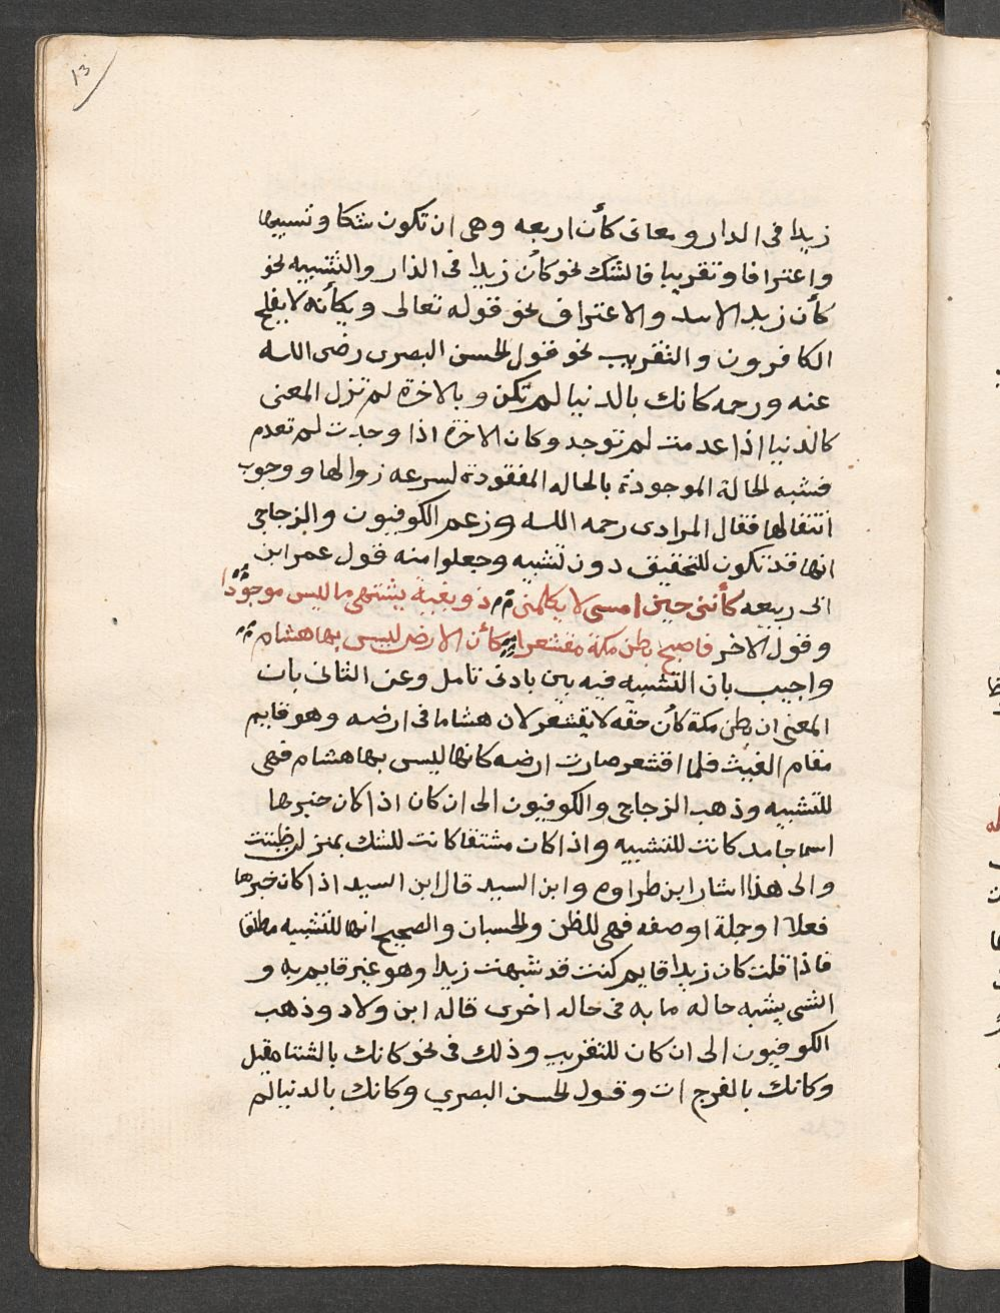 13
زيدا فى الدار ومعانى كأن اربعه وهى ان تكون شكا وتشبيها
واعترافا وتقريبا فالشك نحو كان زيدا فى الدار والتشبيه نحو
كأن زيد الاسد والاعتراف نحو قوله تعالى ويكأنه لا يفلح
الكافرون والتقريب نحو قول الحسن البصرى رضى الله
عنه ورحمه كانك بالدنيا لم تكن وبالاخرة لم تزل المعنى
كالدنيا اذا عدمت لم توجد وكان الاخرة اذا وجدت لم تعدم
فشبه الحالة الموجودة بالحاله المفقودة لسرعه زوالها ووجوب
انتقالها فقال المرادى رحمه الله وزعم الكوفيون والزجاجى
انها قد تكون للتحقيق دون تشبيه وجعلوا منه قول عمر ابن
ابى ربيعه كأننى حين امسى لا يكلمنى ذو بغية يشتهى ما ليس موجودا
وقول الاخر فاصبح بطن مكة مقشعرا كأن الارض ليس بها هشام
واجيب بان التشبيه فيه بين بادنى تامل وعن الثانى بان
المعنى ان بطن مكة كأن حقه لا يقشعر لان هشاما فى ارضه وهو قايم
مقام الغيث فلما اقشعر صارت ارضه كانها ليس بها هشام فهى
للتشبيه وذهب الزجاجى والكوفيون الى ان كان اذا كان خبرها
اسما جامد كانت للتشبيه واذا كان مشتقا كانت للشك بمنزله ظننت
والى هذا اشار ابن طراوه وابن السيد قال ابن السيد اذا كان خبرها
فعلا او جملة او صفه فهى للظن والحسبان والصحيح انها للتشبيه مطلقا
فاذا قلت كان زيدا قايم كنت قد شبهت زيدا وهو غير قايم به و
الشى يشبه حاله ما به فى حاله اخرى قاله ابن ولاد وذهب
الكوفيون الى ان كان للتقريب وذلك فى نحو كانك بالشتا مقبل
وكانك بالفرج ات وقول الحسن البصري وكانك بالدنيا لم